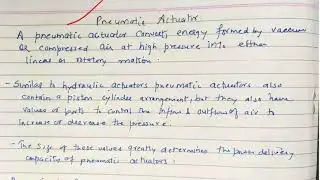 Pneumatic Actuator
A pneumatic actuator converts energy formed by vaccum
or compressed air at high pressure into either
linear or rotary motion.
- Similar to hydraulic actuators pneumatic actuators also
contain a piston cylinder arrangement, but they also have
valves or ports to control the inflow & outflow of air to
increase or decrease the pressure.
- The size of these valves greatly determines the power delivery
capacity of pneumatic actuators.